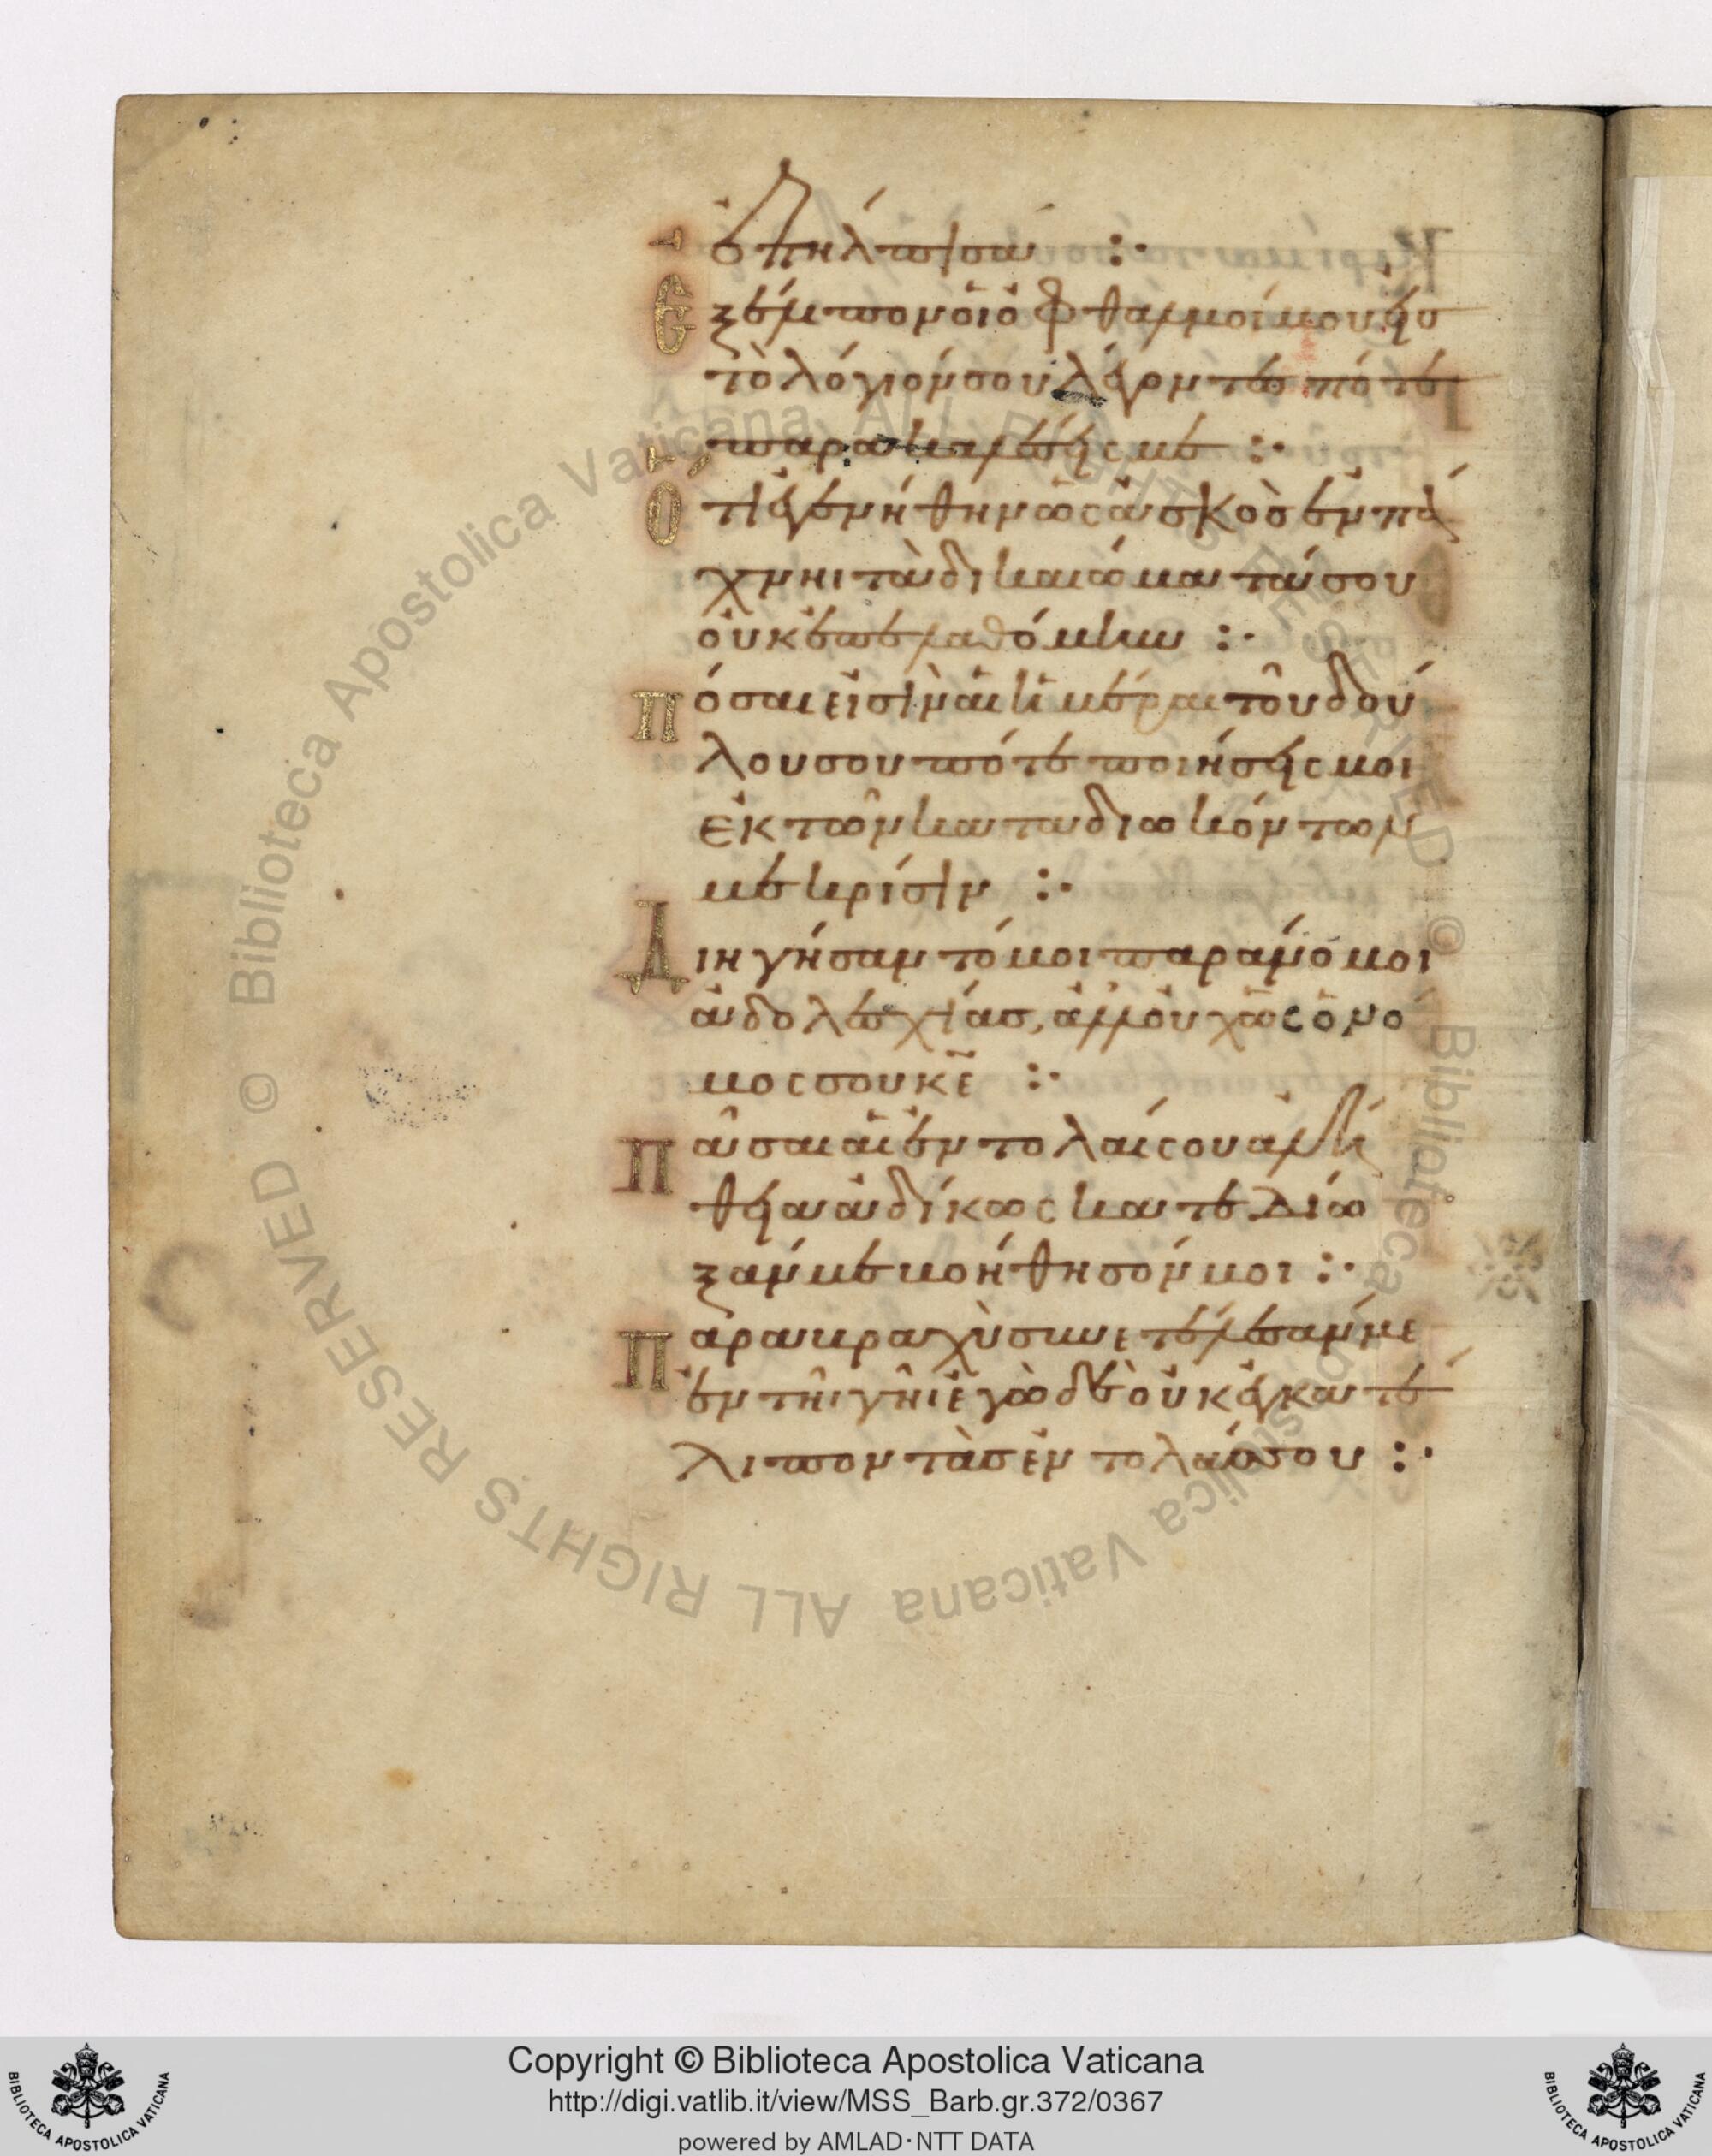 ἐπήλπισα :·
Ἐξέλιπον οἱ ὀφθαλμοί μου εἰς
τὸ λόγιόν σου λέγοντες πότε
παρακαλέσεις με :·
Ὅτι ἐγενήθην ὡς ἀσκὸς ἐν πά
χνηι τὰ δικαιώματά σου
οὐκ ἐπελαθόμην :·
Πόσαι εἰσὶν αἱ ἡμέραι τοῦ δού
λου σου πότε ποιήσεις μοι
ἐκ τῶν καταδιωκόντων
με κρίσιν :·
Διηγήσαντό μοι παράνομοι
ἀδολεσχίας, ἀλλ οὐχ ὡς ὁ νό
μος σου κε :·
Πᾶσαι αἱ ἐντολαί σου ἀλή
θεια ἀδίκως κατεδίω
ξάν με βοήθησόν μοι :·
Παρα βραχὺ συνετέλεσάν με
ἐν τῆι γῆι ἐγὼ δὲ οὐκ ἐγκατέ
λιπον τὰς ἐντολάς σου :·
Copyright © Biblioteca Apostolica Vaticana
http://digi.vatlib.it/view/MSS_Barb.gr.372/0367
powered by AMLAD·NTT DATA
BIBLIOTECA APOSTOLICA VATICANA
BIBLIOTECA APOSTOLICA VATICANA
© Biblioteca Apostolica Vaticana ALL RIGHTS RESERVED
© Biblioteca Apostolica Vaticana ALL RIGHTS RESERVED